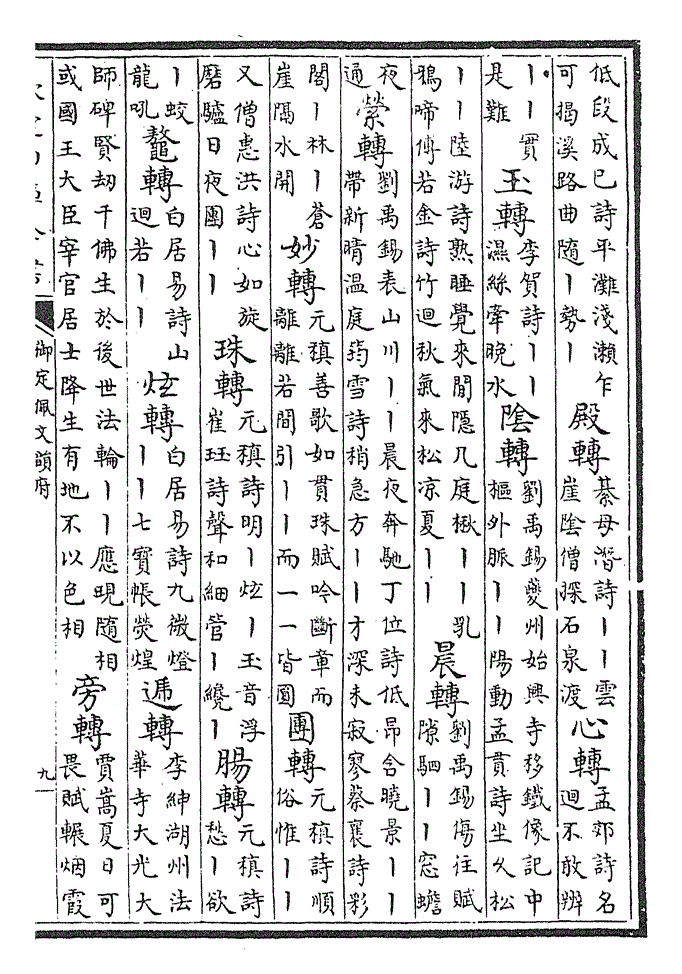 低段成已詩平灘淺瀨乍
可揭溪路曲隨丨勢丨
殿轉
綦母潛詩丨丨雲
崖陰僧探石泉渡
心轉
孟郊詩名
迴不敢辨
丨丨實
是難
玉轉
李賀詩丨丨
濕絲牽晚水
陰轉
劉禹錫夔州始興寺移鐵像記中
樞外脈丨丨陽動孟貫詩坐久松
丨丨陸游詩熟睡覺來閒隱几庭楸丨丨乳
鵶啼傅若金詩竹迴秋氣來松凉夏丨丨
晨轉
劉禹錫傷往賦
隙駟丨丨窓蟾
夜
通
縈轉
劉禹錫表山川丨丨晨夜奔馳丁位詩低昂合曉景丨丨
帶新晴温庭筠雪詩稍急方丨丨才深未寂寥蔡襄詩影丨
閣丨林丨蒼
崖隔水開
妙轉
元稹善歌如貫珠賦吟斷章而
離離若間引丨丨而一一皆圓
團轉
元稹詩順
俗惟丨丨
又僧惠洪詩心如旋
磨驢日夜團丨丨
珠轉
元稹詩明丨炫丨玉音浮
崔珏詩聲和細管丨纔丨
腸轉
元稹詩
愁丨欲
丨蛟
龍吼
鼇轉
白居易詩山
迴若丨丨
炫轉
白居易詩九微燈
丨丨七寶帳熒煌
遞轉
李紳湖州法
華寺大光大
師碑賢劫千佛生於後世法輪丨丨應現隨相
或國王大臣宰官居士降生有地不以色相
旁轉
賈嵩夏日可
畏賦輾烟霞
御定佩文韻府
九